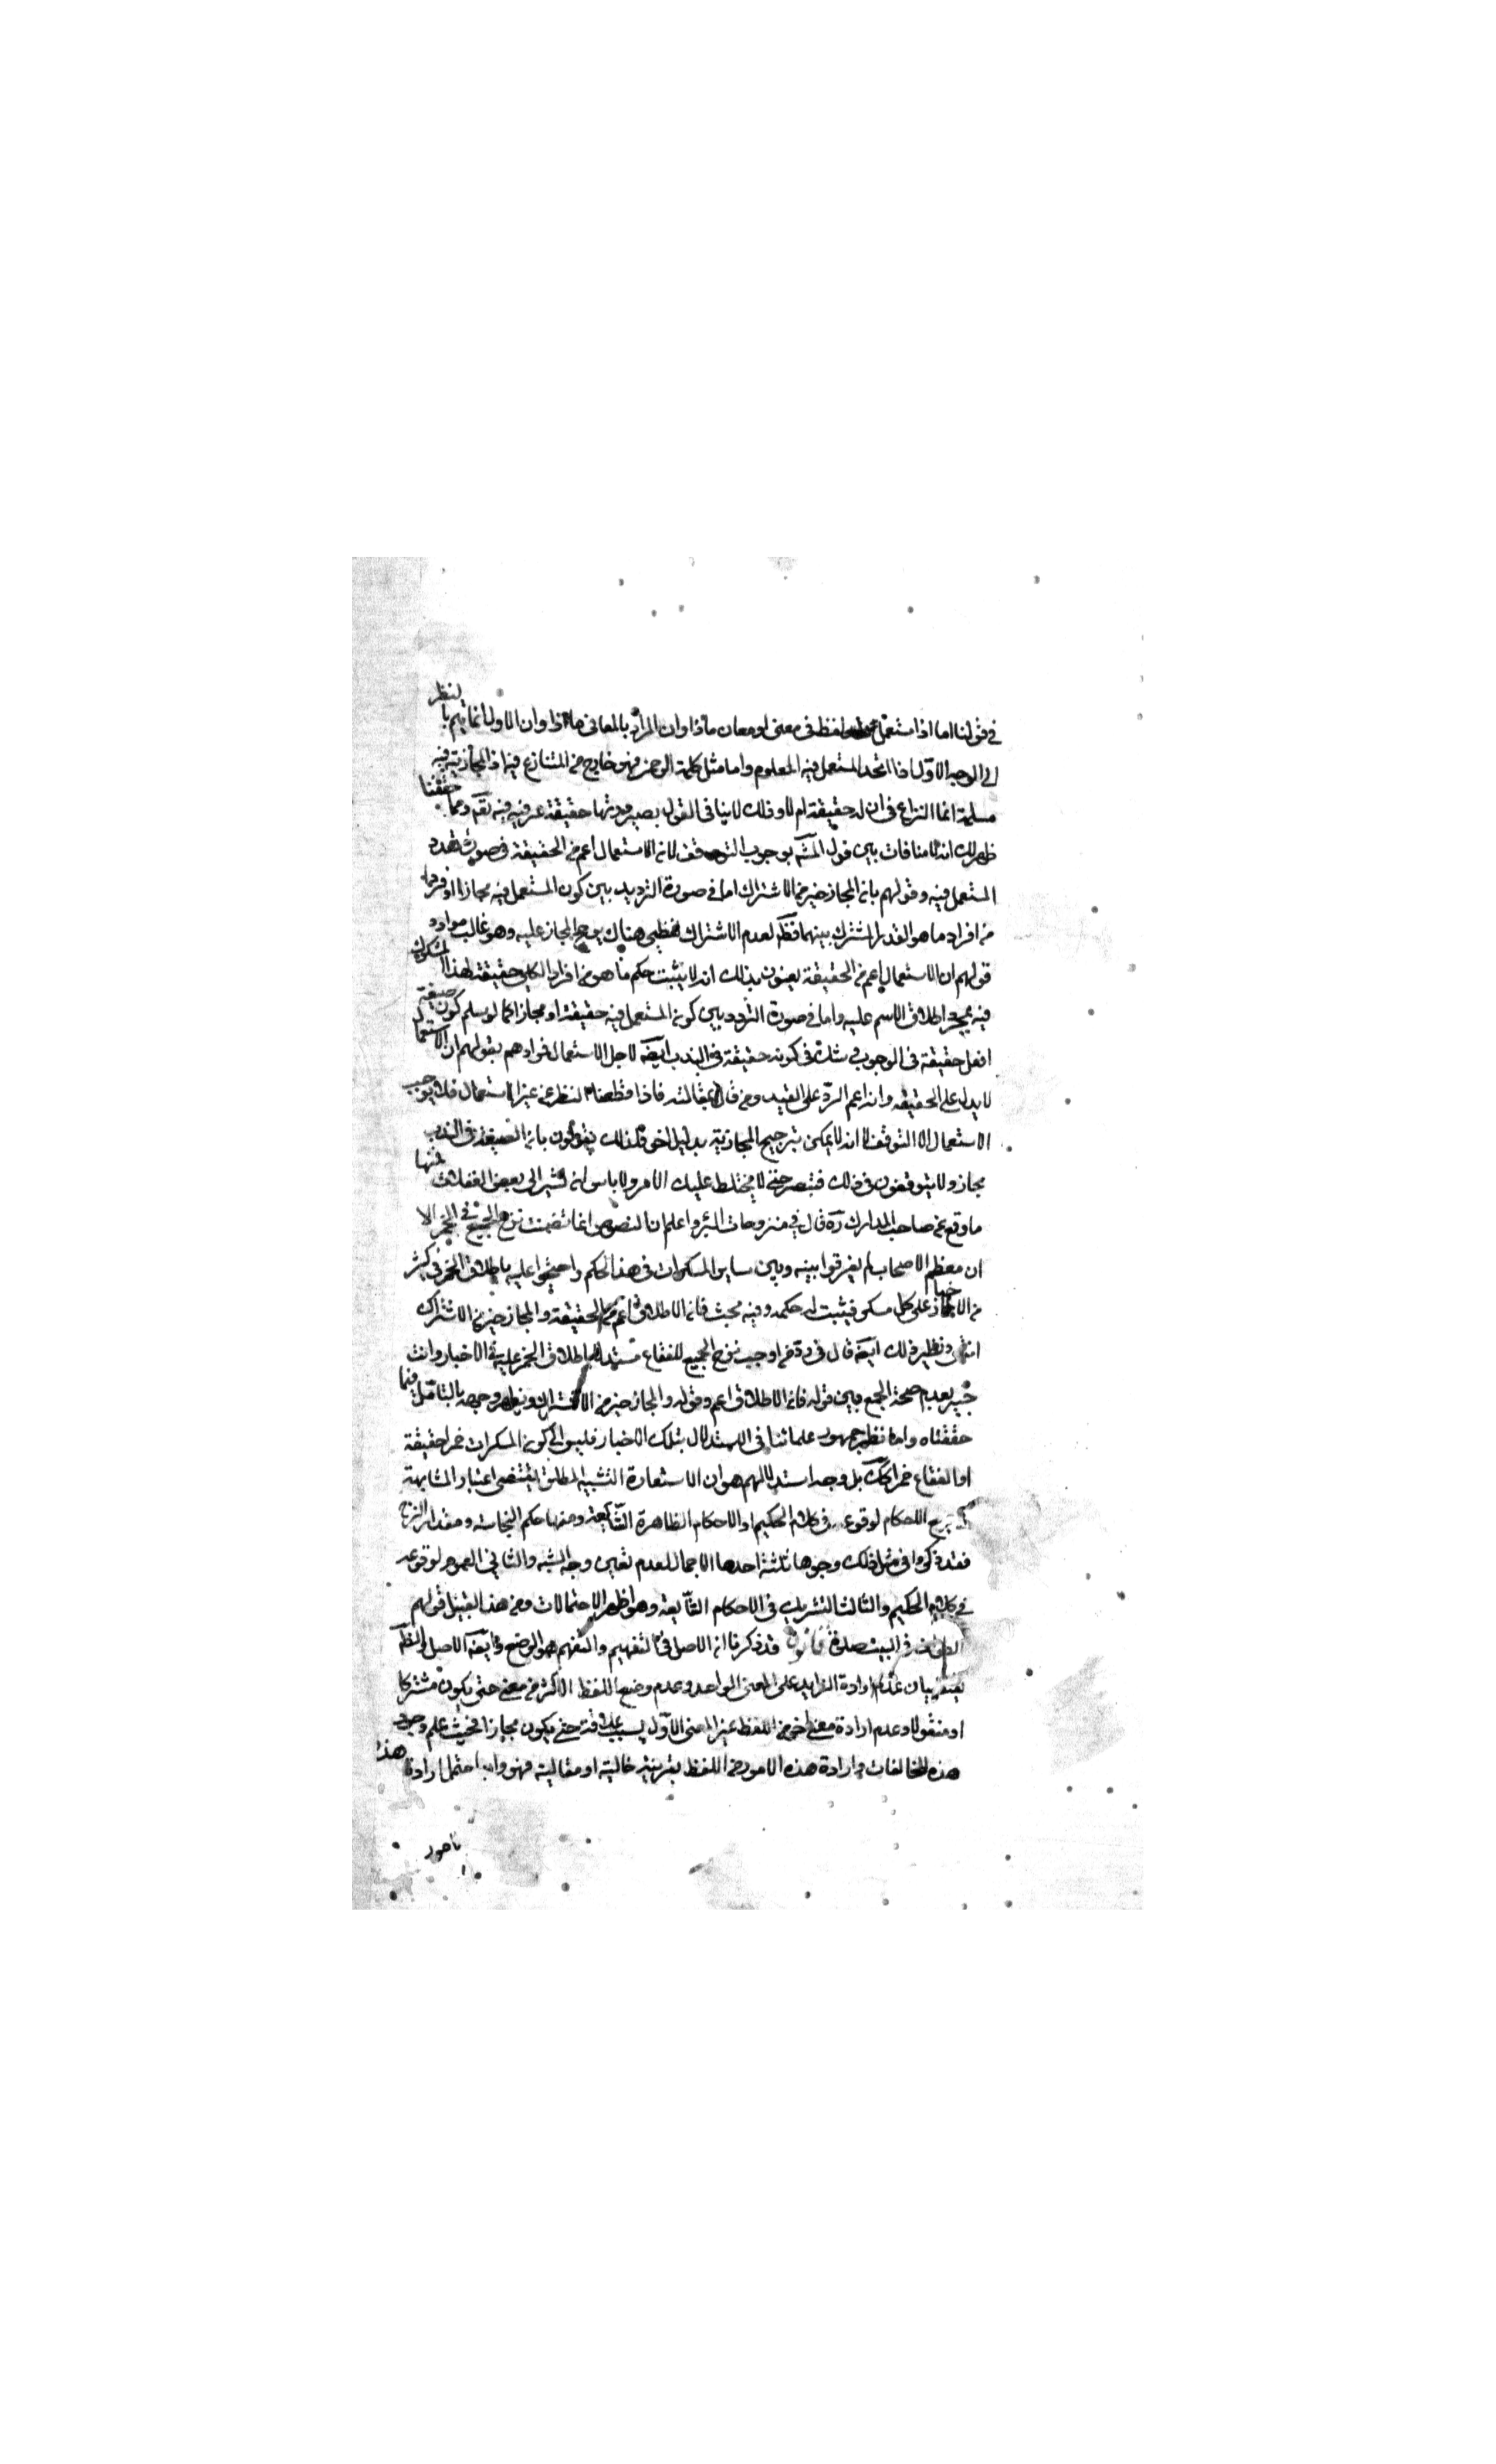 في قولنا اما اذا استعمل لفظ في معنى او معان ماذا وان المراد بالمعاني ماذا وان الاول انما يتم بالنظر
الى الوجه الاول اذا اتحد المستعمل فيه المعلوم واما مثل كلمة الرحمن فهو خارج من المتنازع فيه اذ المجازية فيه
مسلمة انما النزاع في ان له حقيقة ام لا وذلك لاينافي القول بصيرورتها حقيقة عرفية فيه تعم ومما حققنا
ظهر لك انه لا منافات بين قول المشه بوجوب التوقف لان الاستعمال اعم من الحقيقة في صورة تعدد
المستعمل فيه وقولهم بان المجاز خير من الاشتراك اما في صورة الترديد بين كون المستعمل فيه مجازا او فردا
من افراد ما هو القدر المشترك بينهما فظه لعدم الاشتراك لفظي هناك يرجح المجاز عليه وهو غالب موارد
قولهم ان الاستعمال اعم من الحقيقة يعنون بذلك انه لا يثبت حكم ما هو من افراد الكلي حقيقة لهذا المشكوك
فيه بمجرد اطلاق الاسم عليه واما في صورة التردد بين كون المستعمل فيه حقيقة او مجازا كما لو سلم كون صيغة
افعل حقيقة في الوجوب وشك في كونه حقيقة في الندب ايضه لاجل الاستعمال فمرادهم بقولهم ان الاستعمال
لا يدل على الحقيقة وانه اعم الرد على السيد ومن قال بمقالته فاذا قطعنا النظر عن غير الاستعمال فلا يوجب
الاستعمال الا التوقف لا انه لا يمكن ترجيح المجازية بدليل اخر فلذلك يقولون بان الصيغة في الندب
مجاز ولا يتوقفون في ذلك فتبصر حتى لا يختلط عليك الامر ولا باس ان نشير الى بعض الغفلات منها
ما وقع عن صاحب المدارك ره قال في منزوحات البئر واعلم ان النصوص انما تضمنت نزح الجميع في الخمر الا
ان معظم الاصحاب لم يفرقوا بينه وبين ساير المسكرات في هذا الحكم واحتجوا عليه باطلاق الخمر في كثير
من الاخبار على كل مسكر فيثبت له حكمه وفيه بحث فان الاطلاق اعم من الحقيقة والمجاز خير من الاشتراك
انتهى ونظير ذلك ايضه قال في رد من اوجب نزح الجميع للفقاع مستدلا باطلاق الخمر عليه في الاخبار وانت
خبير بعدم صحة الجمع بين قوله فان الاطلاق اعم وقوله والمجاز خير من الاشتراك ويظهر وجهه بالتامل فيما
حققناه واما نظر جمهور علمائنا في الاستدلال بتلك الاخبار فليس الى كون المسكرات خمرا حقيقة
او الفقاع خمرا كك بل وجه استدلالهم هو ان الاستعارة التشبيه المطلق يقتضي اعتبار المشابهة
الاحكام لوقوعه في كلام الحكيم او الاحكام الظاهرة الشايعة ومنها حكم النجاسة ومقدار النزح
فقد ذكروا في مثل ذلك وجوها ثلثة احدها الاجمال لعدم تعيين وجه الشبه والثاني العموم لوقوعه
في كلام الحكيم والثالث التشريك في الاحكام الشايعة وهو اظهر الاحتمالات ومن هذا القبيل قولهم
الطواف في البيت صلوة قانون قد ذكرنا ان الاصل في التفهيم والتفهم هو الوضع وايضه الاصل والظه
يقتضيان عدم ارادة الزايد على المعنى الواحد وعدم وضع اللفظ الاكثر من معنى حتى يكون مشتركا
او منقولا وعدم ارادة معنى اخر من اللفظ غير المعنى الاول بسبب علاقة حتى يكون مجازا فحيث علم وجود
هذه المخالفات وارادة هذه الامور من اللفظ بقرينة حالية او مقالية فهو واما احتمل ارادة هذه